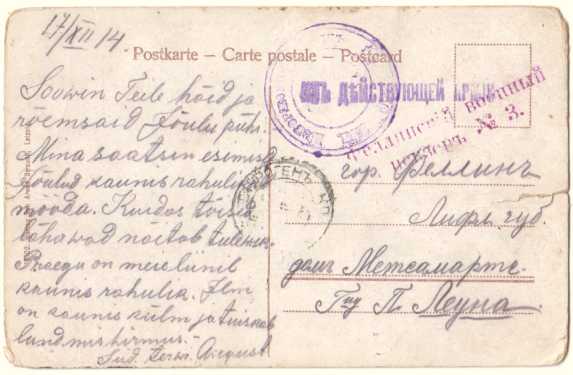 17/XII 14.
Postkarte – Carte postale – Postcard
Soowin Teile häid ja
rõemsaid Jõulu pühi.
Mina saatsin esimesed
Jõulud kaunis rahulikult
mööda. Kuidas teised
lähawad näitab tulewik.
Praegu on meie liinil
kaunis rahulik. Ilm
on kaunis külm ja tuiskab
lund mis hirmus. –
Süd. terw. August
ИЗЪ ДѢЙСТВУЮЩЕЙ АРМІИ
Феллинскій военный
цензоръ № 3.
гор. Феллинъ
Лифл. губ.
домъ Метсамартъ.
Гну П. Леуна.